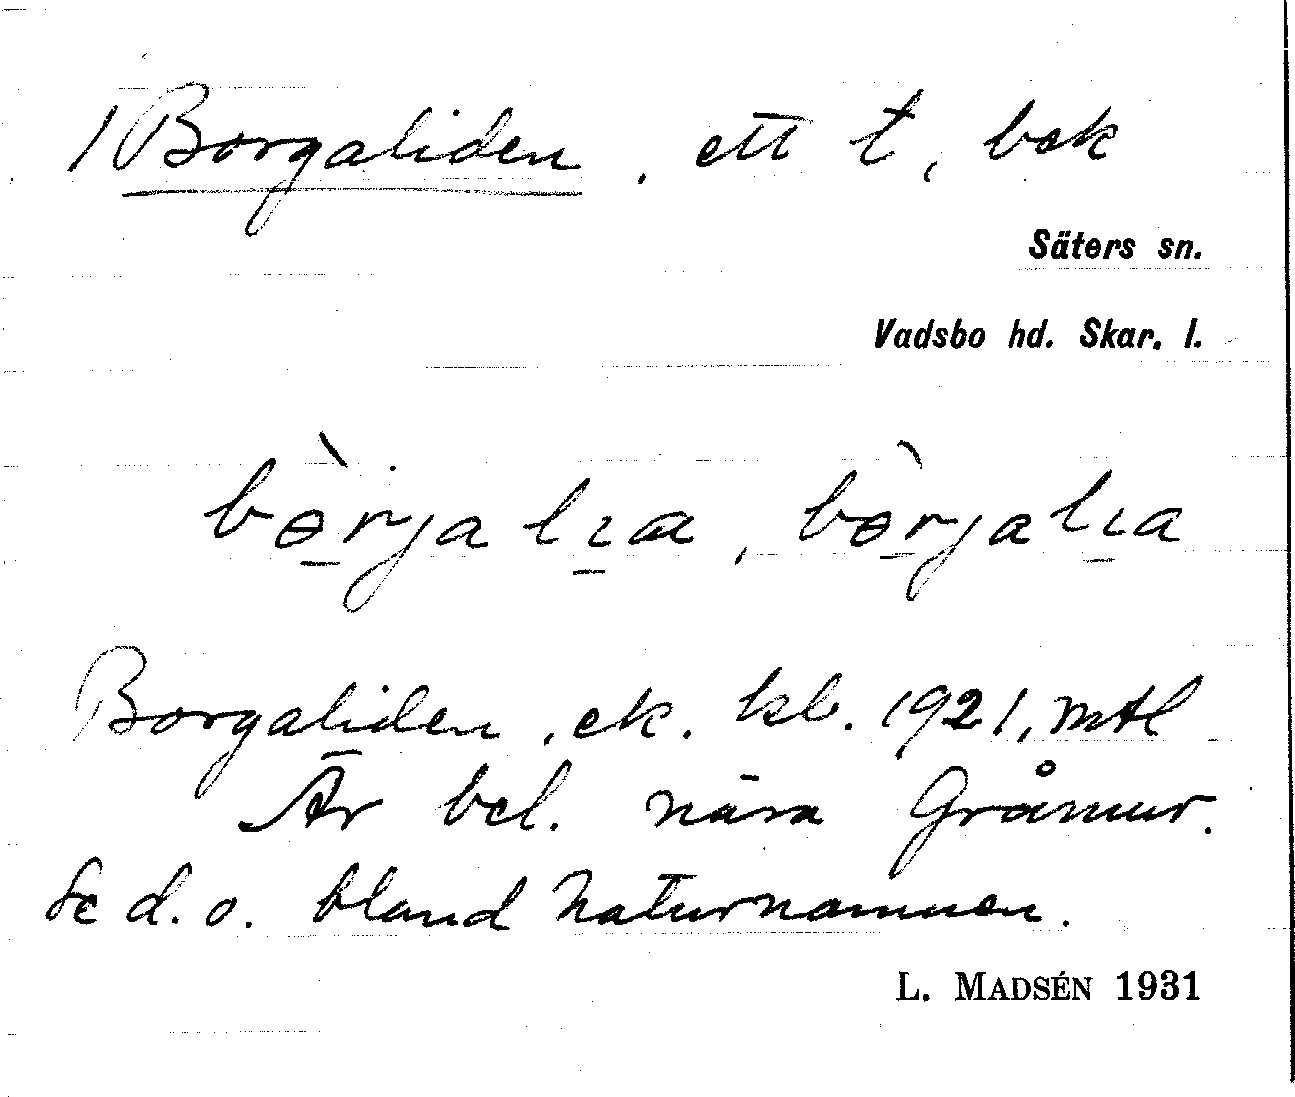 1 Borgaliden, ett t, bek
Säters sn.
Vadsbo hd. Skar. l.
bɵ̀rjalıa, bɵ̀rjalıa
Borgaliden, ek. kb. 1921, mtl
Är bel. nära Gråmur.
Se d. o. bland naturnamnen.
L. MADSÉN 1931